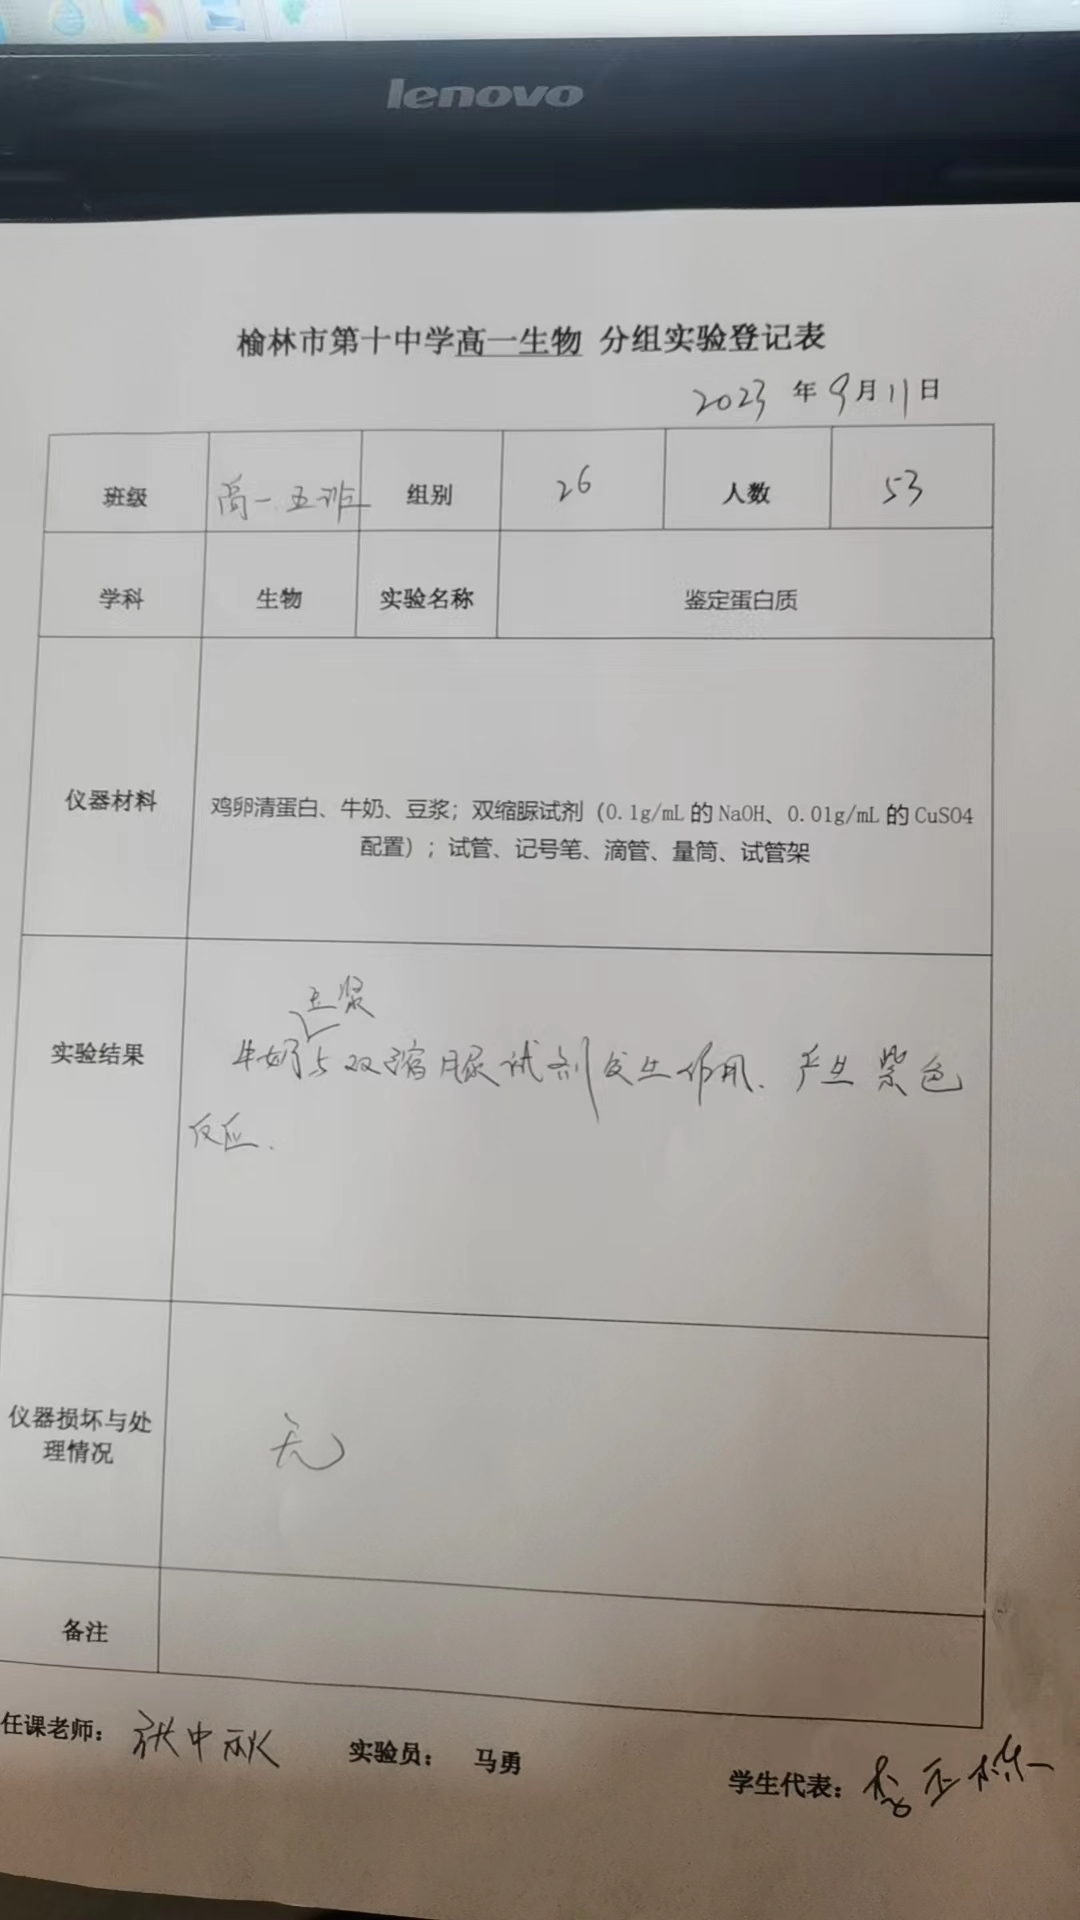 lenovo
榆林市第十中学高一生物 分组实验登记表
2023 年 9 月 11 日
班级 高一.五班 组别 26 人数 53
学科 生物 实验名称 鉴定蛋白质
仪器材料
鸡卵清蛋白、牛奶、豆浆；双缩脲试剂（0.1g/mL 的 NaOH、0.01g/mL 的 CuSO4
配置）；试管、记号笔、滴管、量筒、试管架
实验结果
豆浆
牛奶与双缩脲试剂发生作用. 产生紫色
反应.
仪器损坏与处
理情况
无
备注
任课老师： 张中秋 实验员： 马勇 学生代表： 李正栋